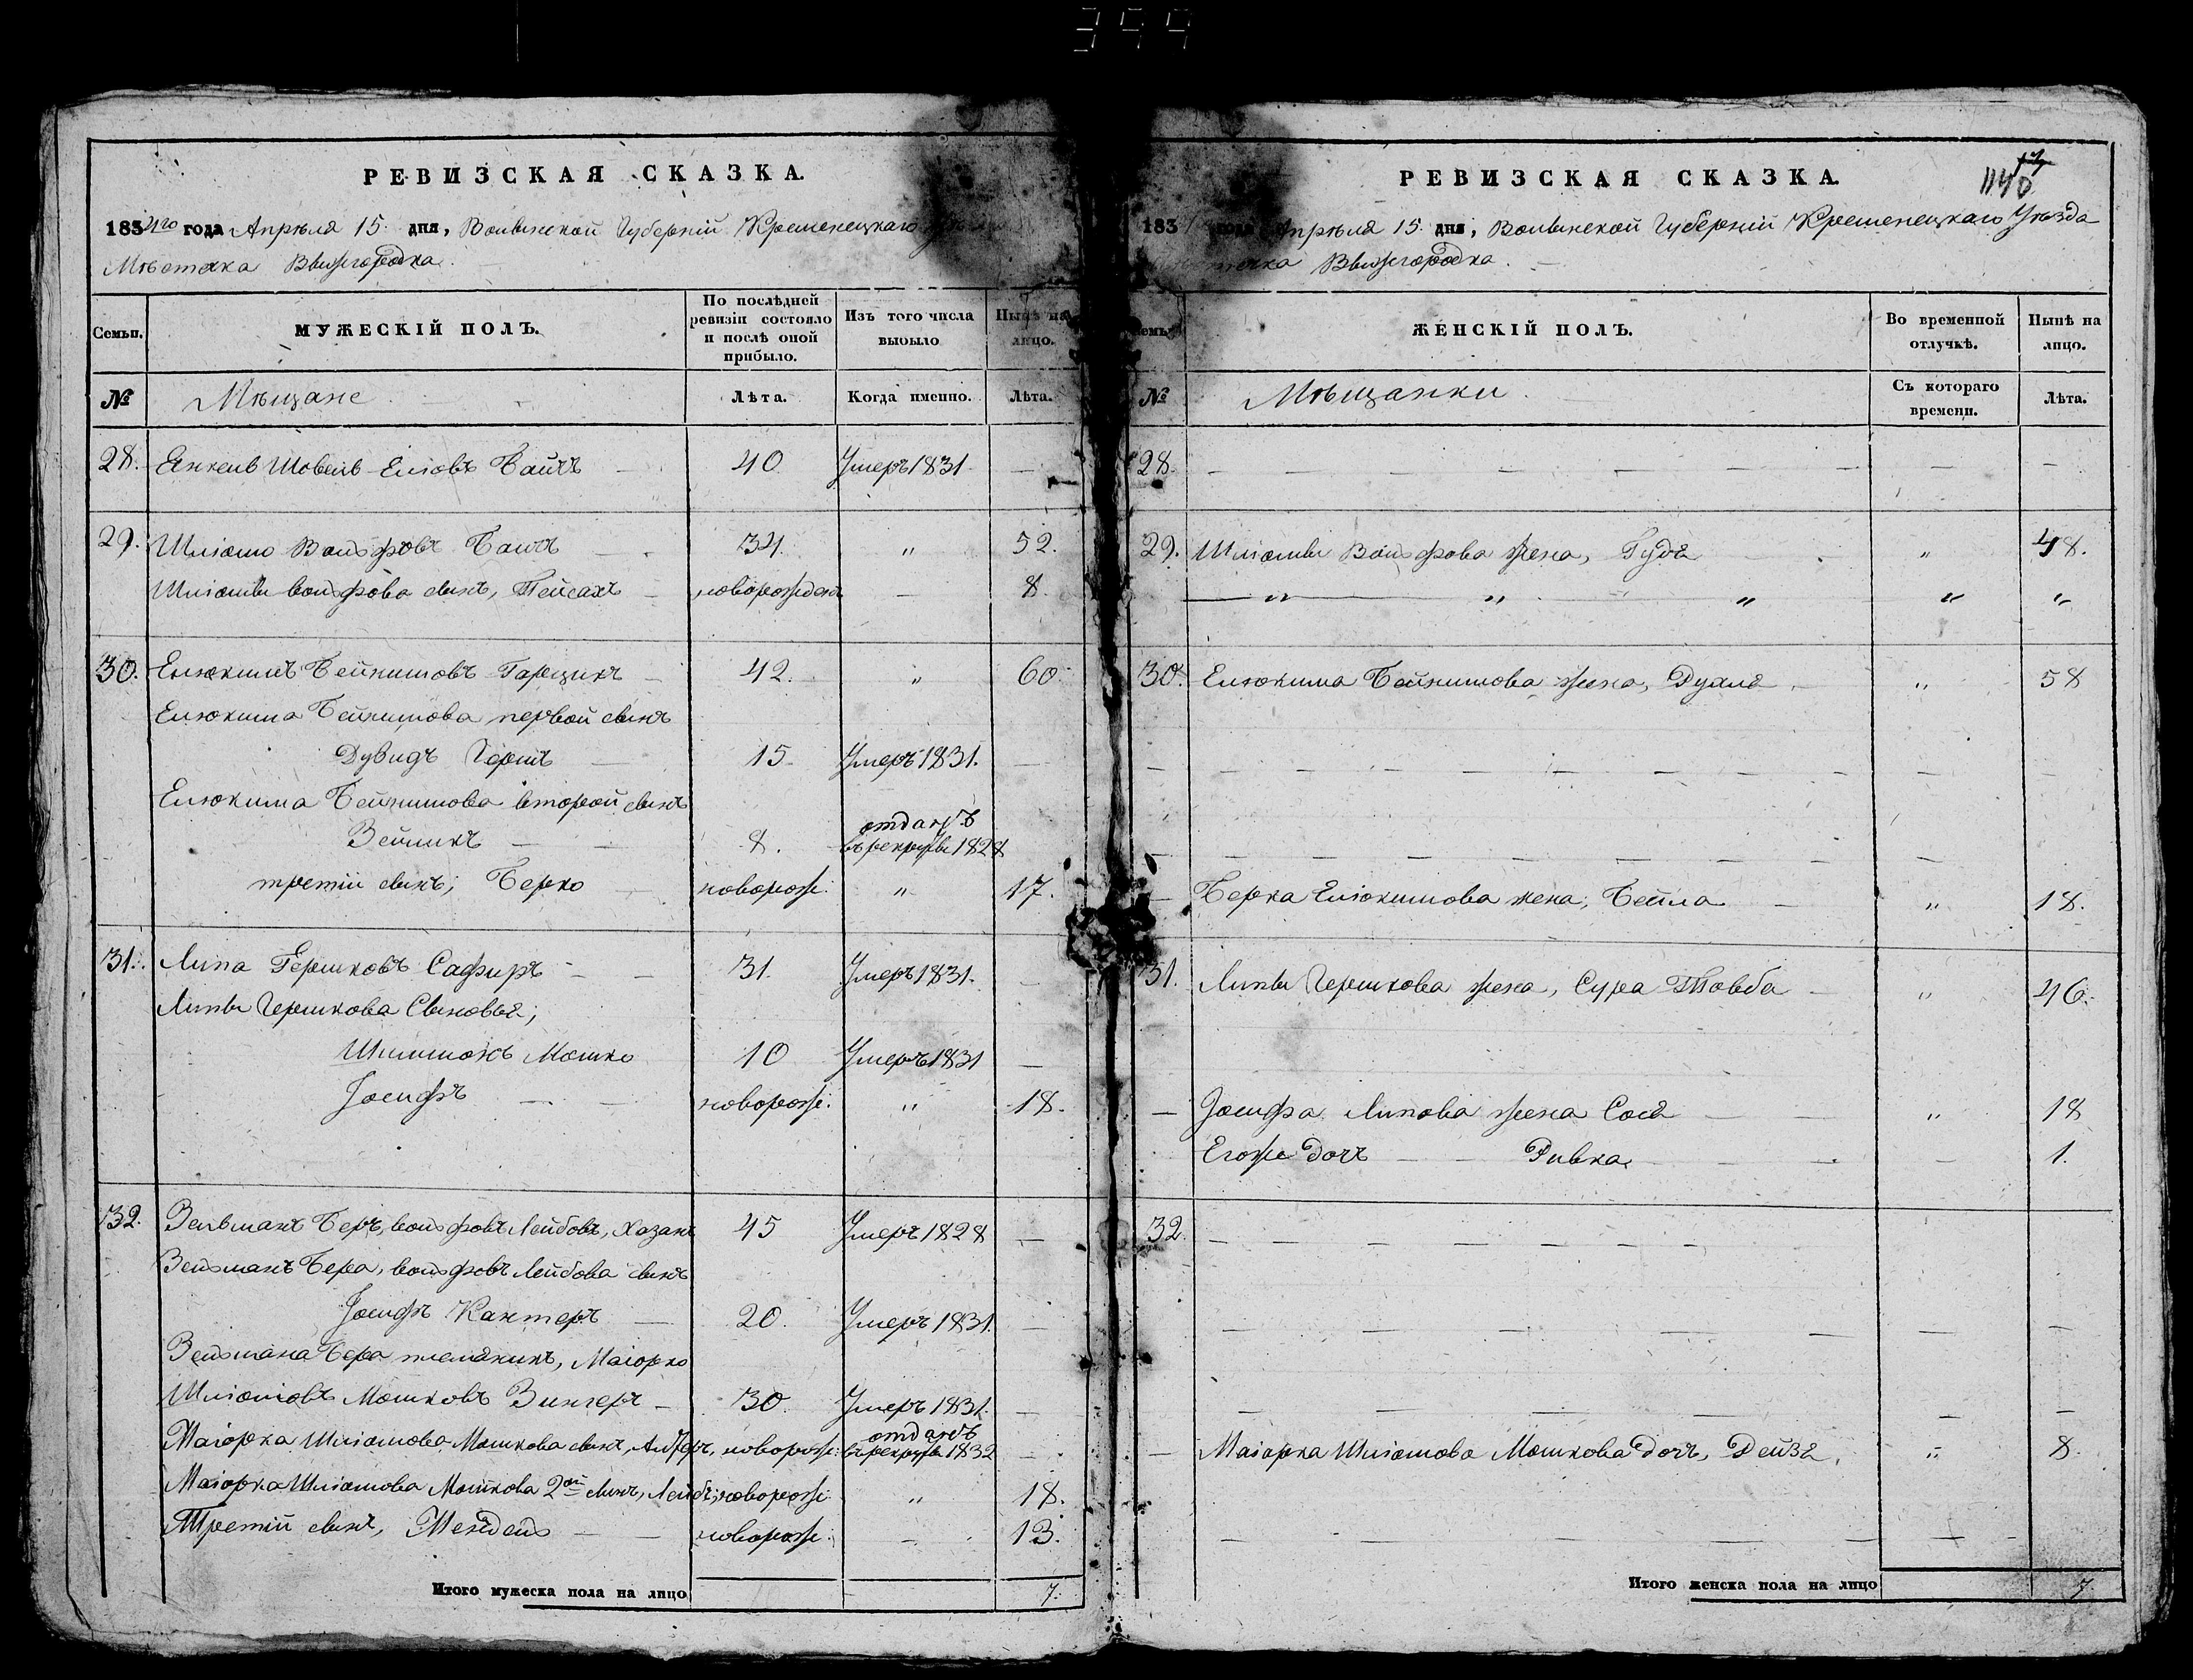 РЕВИЗСКАЯ СКАЗКА.
1834го года Апрѣля 15. дня, Волынской Губерній Кременецкаго
Мѣстечка Вышгородка.
Семьи.
МУЖЕСКІЙ ПОЛЪ.
По послѣдней ревизіи состояло и послѣ оной прибыло.
Изъ того числа выбыло
Нынѣ на лицо.
№ Мѣщане Лѣта. Когда именно. Лѣта.
28. Янкель Шовель Еліовъ Байчъ 40 Умеръ 1831 —
29. Шліомо Вольфовъ Банчъ 34 " 52.
Шліомы Вольфова сынъ, Пейсахъ новорожден — 8.
30. Елюкимъ Бейнишовъ Гарцикъ 42. " 60
Елюкима Бейнишова первой сынъ
Дувидъ Гершъ 15 Умеръ 1831. —
Елюкима Бейнишова второй сынъ
Зейликъ 8. отданъ въ рекруты 1828
третій сынъ, Берко новорож: " 17.
31. Липа Гершковъ Сафиръ 31. Умеръ 1831. —
Липы Гершкова Сыновья;
Шлиомонъ Мошко 10 Умеръ 1831 —
Іосифъ новорож: " 18.
32. Зельманъ Беръ, Вольфовъ Лейбовъ, Хазанъ 45 Умеръ 1828 —
Зельманъ Бера, Вольфовъ Лейбова сынъ
Іосифъ Кантеръ 20. Умеръ 1831. —
Зельмана Бера племяникъ, Маіорко
Шліомовъ Мошковъ Зингеръ 30. Умеръ 1831. —
Маіорка Шліомова Мошкова сынъ, Алтеръ, новорож: отданъ въ рекруты 1832 —
Маіорка Шліомова Мошкова 2ой сынъ, Лейбъ; новорож: " 18.
Третій сынъ, Мендель новорож: — 13.
Итого мужеска пола на лицо 7.
РЕВИЗСКАЯ СКАЗКА.
1140
183 года Апрѣля 15. дня, Волынской Губерній Кременецкаго Уѣзда
Вышгородка.
ЖЕНСКІЙ ПОЛЪ.
Во временной отлучкѣ.
Нынѣ на лицо.
№ Мѣщанки Съ котораго времени. Лѣта.
28. — — —
29. Шліомы Вольфова жена, Гудя " 48.
" " " " "
30. Елюкима Бейнишова жена, Духля " 58
— — —
— — —
— Берка Елюкимова жена, Бейла " 18.
31. Липы Гершкова жена, Сура Товба " 46.
— Іосифа Липова жена Сося " 18
Егоже дочъ Ривка — 1.
32. — — —
— — —
— — —
— Маіорка Шліомова Мошкова дочъ, Рейзя, " 8.
— — —
Итого женска пола на лицо 7